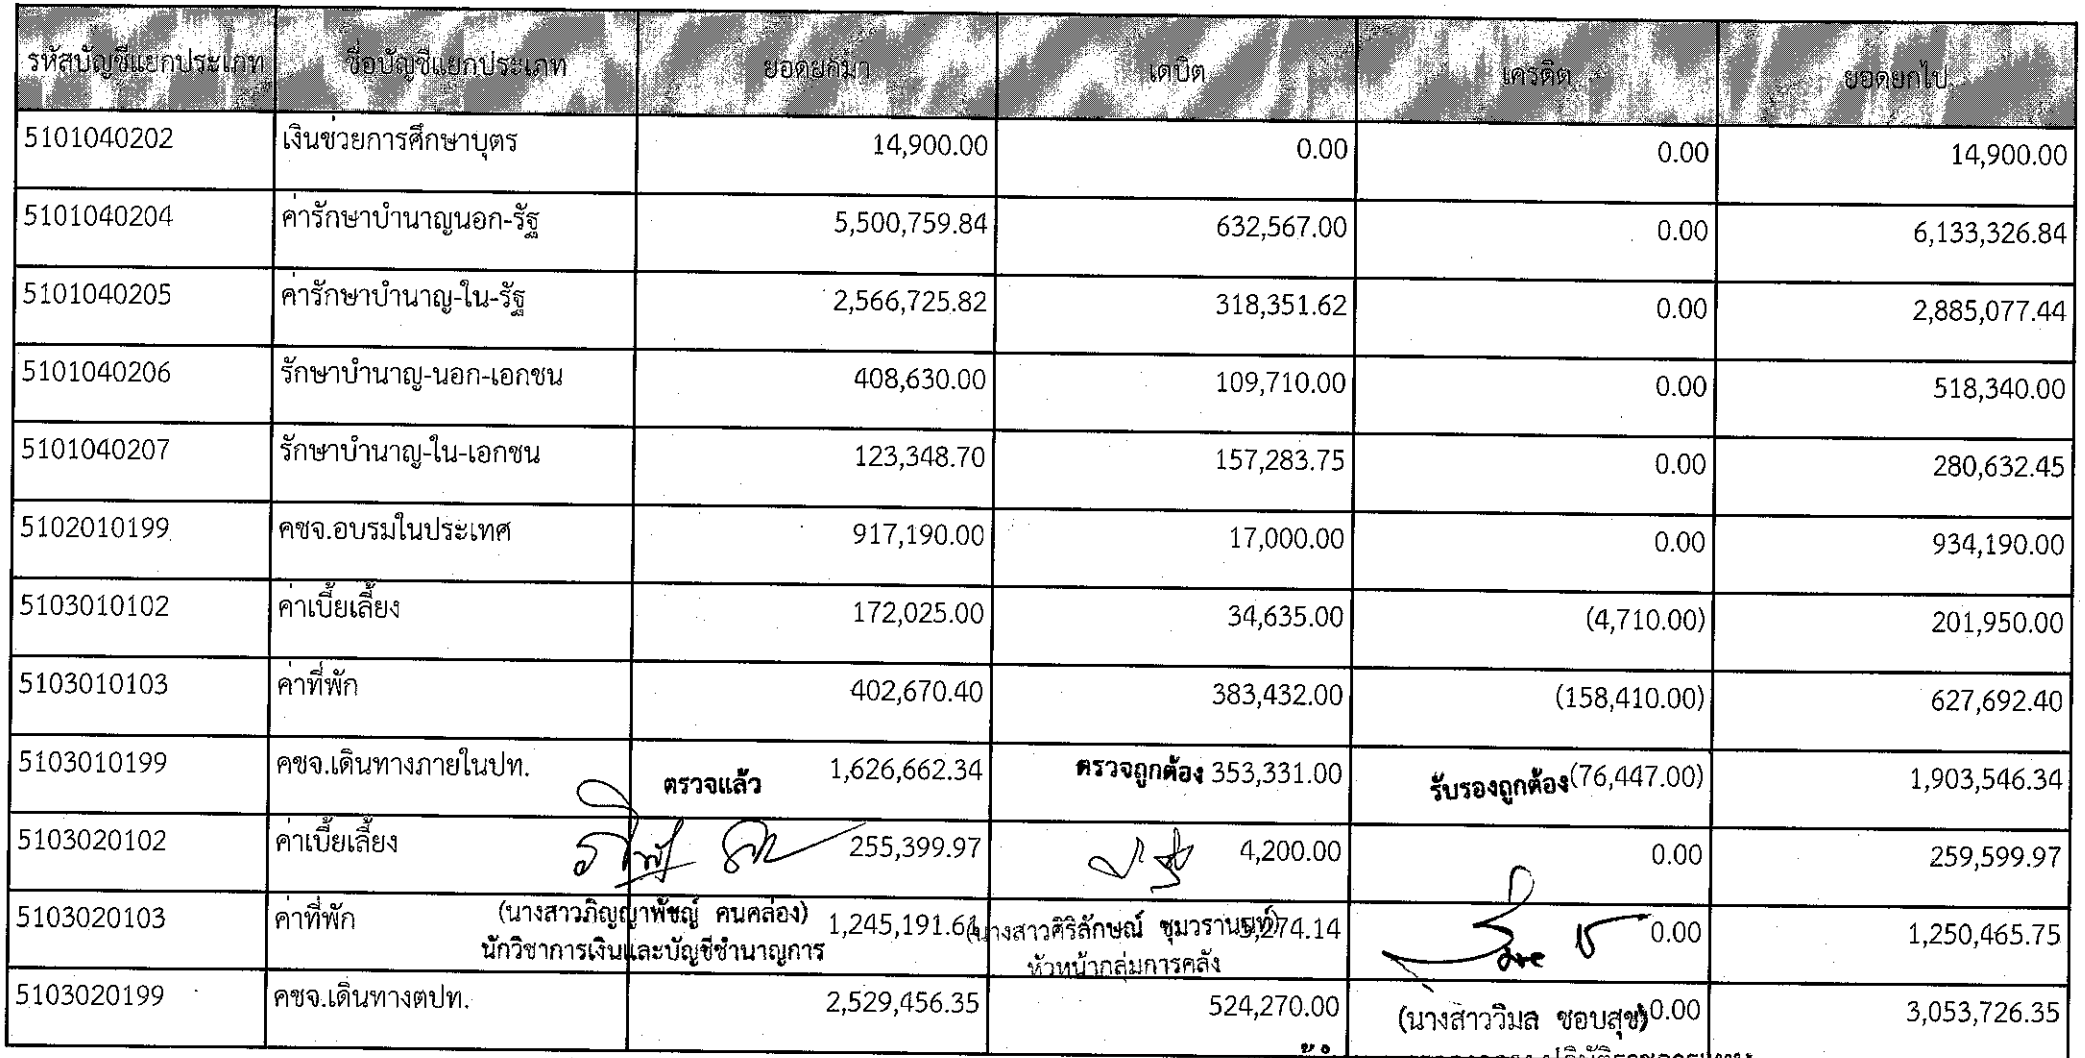 รหัสบัญชีแยกประเภท ชื่อบัญชีแยกประเภท ยอดยกมา เดบิต เครดิต ยอดยกไป
5101040202 เงินช่วยการศึกษาบุตร 14,900.00 0.00 0.00 14,900.00
5101040204 ค่ารักษาบำนาญนอก-รัฐ 5,500,759.84 632,567.00 0.00 6,133,326.84
5101040205 ค่ารักษาบำนาญ-ใน-รัฐ 2,566,725.82 318,351.62 0.00 2,885,077.44
5101040206 รักษาบำนาญ-นอก-เอกชน 408,630.00 109,710.00 0.00 518,340.00
5101040207 รักษาบำนาญ-ใน-เอกชน 123,348.70 157,283.75 0.00 280,632.45
5102010199 คชจ.อบรมในประเทศ 917,190.00 17,000.00 0.00 934,190.00
5103010102 ค่าเบี้ยเลี้ยง 172,025.00 34,635.00 (4,710.00) 201,950.00
5103010103 ค่าที่พัก 402,670.40 383,432.00 (158,410.00) 627,692.40
5103010199 คชจ.เดินทางภายในปท. 1,626,662.34 353,331.00 (76,447.00) 1,903,546.34
ตรวจแล้ว ตรวจถูกต้อง รับรองถูกต้อง
5103020102 ค่าเบี้ยเลี้ยง 255,399.97 4,200.00 0.00 259,599.97
5103020103 ค่าที่พัก 1,245,191.61 5,274.14 0.00 1,250,465.75
(นางสาวภิญญาพัชญ์ คนคล่อง) (นางสาวศิริลักษณ์ ชุมวรานนท์)
นักวิชาการเงินและบัญชีชำนาญการ หัวหน้ากลุ่มการคลัง
5103020199 คชจ.เดินทางตปท. 2,529,456.35 524,270.00 0.00 3,053,726.35
(นางสาววิมล ชอบสุข)